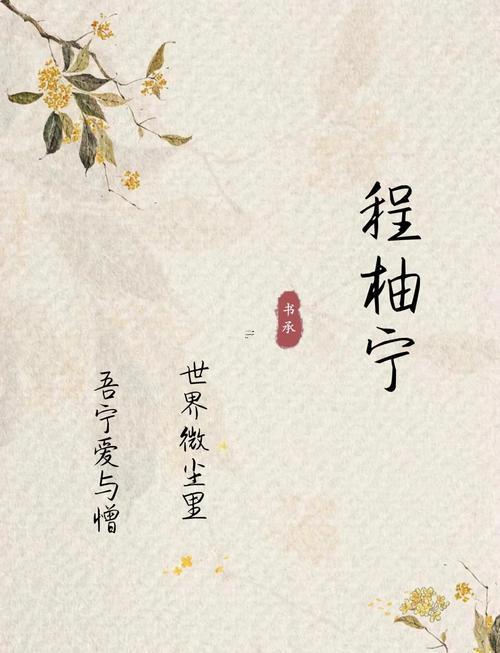 程柚宁
书承
世界微尘里
吾宁爱与憎